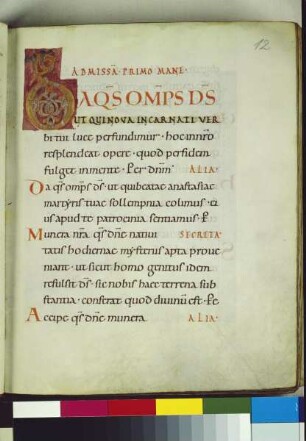 12
AD MISSA PRIMO MANE·
DA QS OMPS DS
UT QUI NOVA INCARNATI VER
bi tui luce perfundimur· hoc in nro
resplendeat opere· quod per fidem
fulget in mente· Per dnm· ALIA·
Da qs omps ds· ut qui beatae anastasiae
martyris tuae sollempnia colimus· ei
us apud te patrocinia sentiamus· P
Munera nra qs dne nativi SECRETA·
tatis hodiernae mysteriis apta prove
niant· ut sicut homo genitus idem
refulsit ds· sic nobis haec terrena sub
stantia· conferat quod divinum est· Pe
Accipe qs dne munera ALIA·